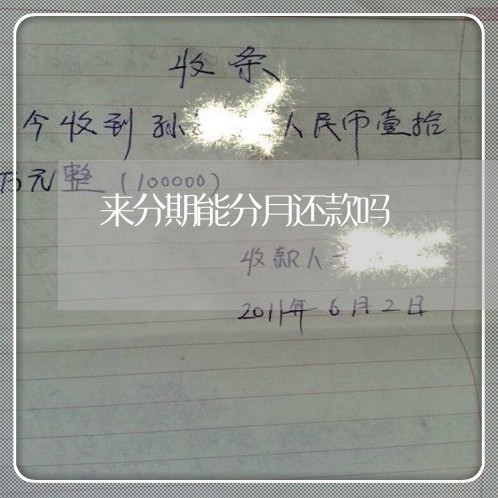 收条
今收到孙人民币壹拾
万元整(100000)
来分期能分月还款吗
收款人
2011年6月2日